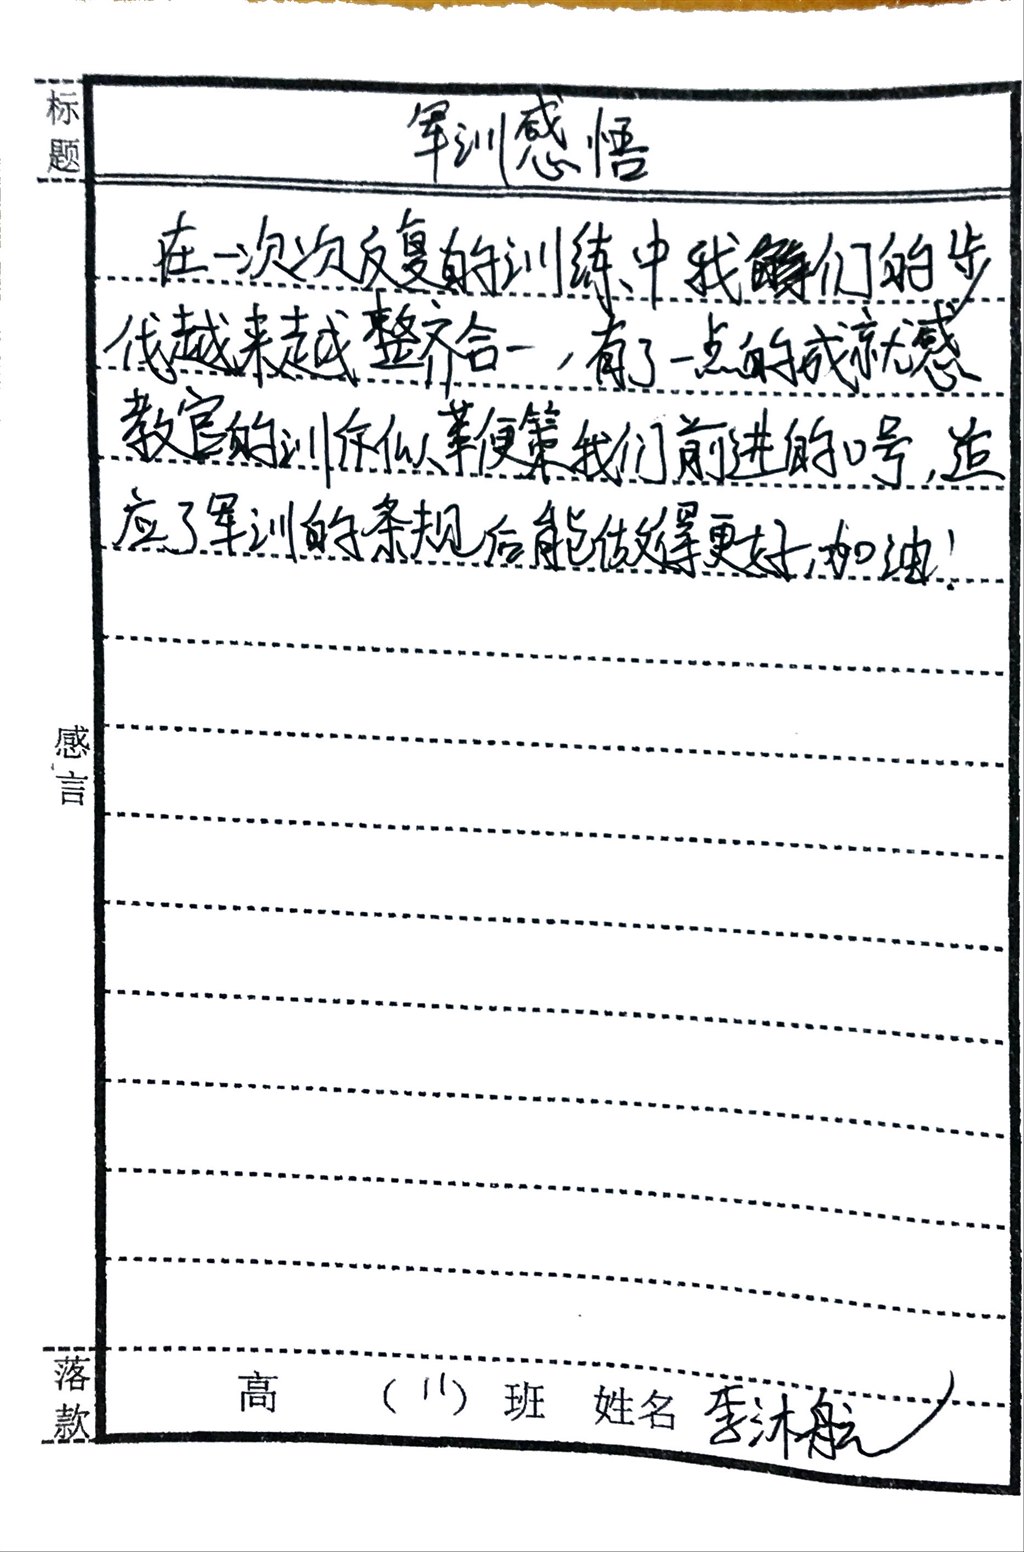 标题
军训感悟
在一次次反复的训练中我们的步
伐越来越整齐合一,有了一点的成就感
教官的训作似革便策我们前进的口号,适
应了军训的条规后能做得更好,加油!
感言
落款
高 (11) 班 姓名 李沐航